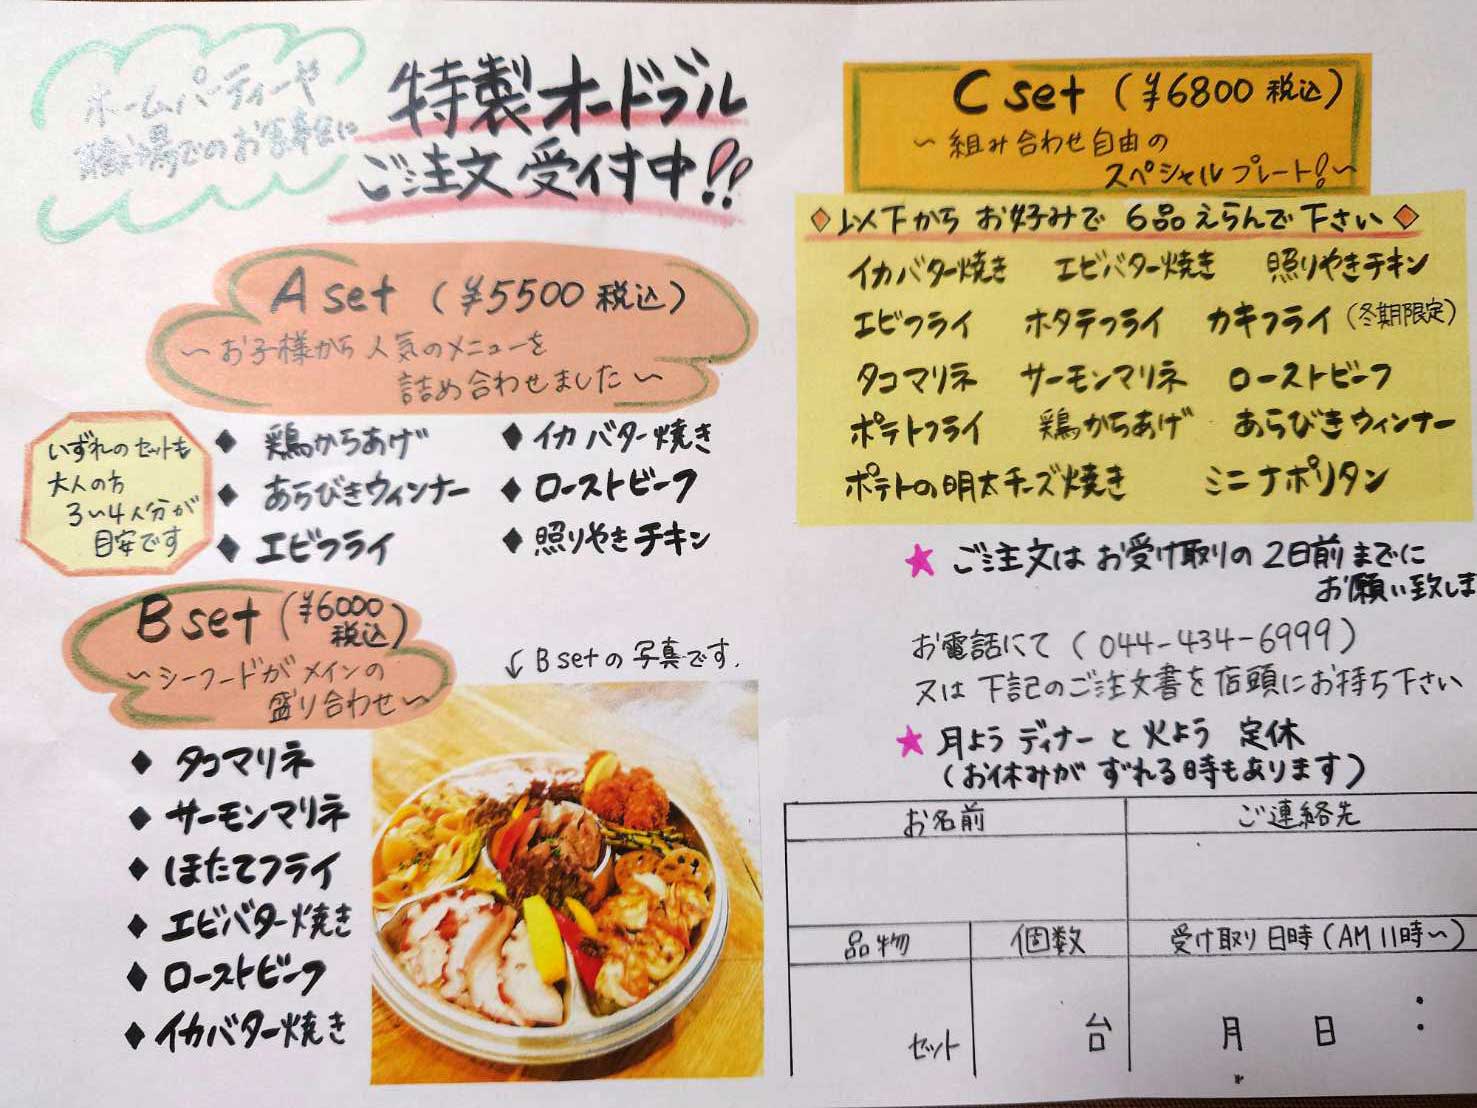 ホームパーティーや
職場でのお食事会に
特製オードブル
ご注文受付中!!
A set (¥5500 税込)
~お子様から人気のメニューを
詰め合わせました~
いずれのセットも
大人の方
3~4人分が
目安です
◆ 鶏からあげ
◆ あらびきウィンナー
◆ エビフライ
◆ イカバター焼き
◆ ローストビーフ
◆ 照りやきチキン
B set (¥6000
税込)
~シーフードがメインの
盛り合わせ~
↙ B setの写真です.
◆ タコマリネ
◆ サーモンマリネ
◆ ほたてフライ
◆ エビバター焼き
◆ ローストビーフ
◆ イカバター焼き
C set (¥6800 税込)
~組み合わせ自由の
スペシャルプレート!~
◇以下から お好みで 6品えらんで下さい◇
イカバター焼き エビバター焼き 照りやきチキン
エビフライ ホタテフライ カキフライ(冬期限定)
タコマリネ サーモンマリネ ローストビーフ
ポテトフライ 鶏からあげ あらびきウィンナー
ポテトの明太チーズ焼き ミニナポリタン
★ ご注文はお受け取りの2日前までに
お願い致しま
お電話にて(044-434-6999)
又は下記のご注文書を店頭にお持ち下さい
★ 月ようディナーと火よう 定休
(お休みがずれる時もあります)
お名前 ご連絡先
品物 個数 受け取り日時(AM11時~)
セット 台 月 日 :